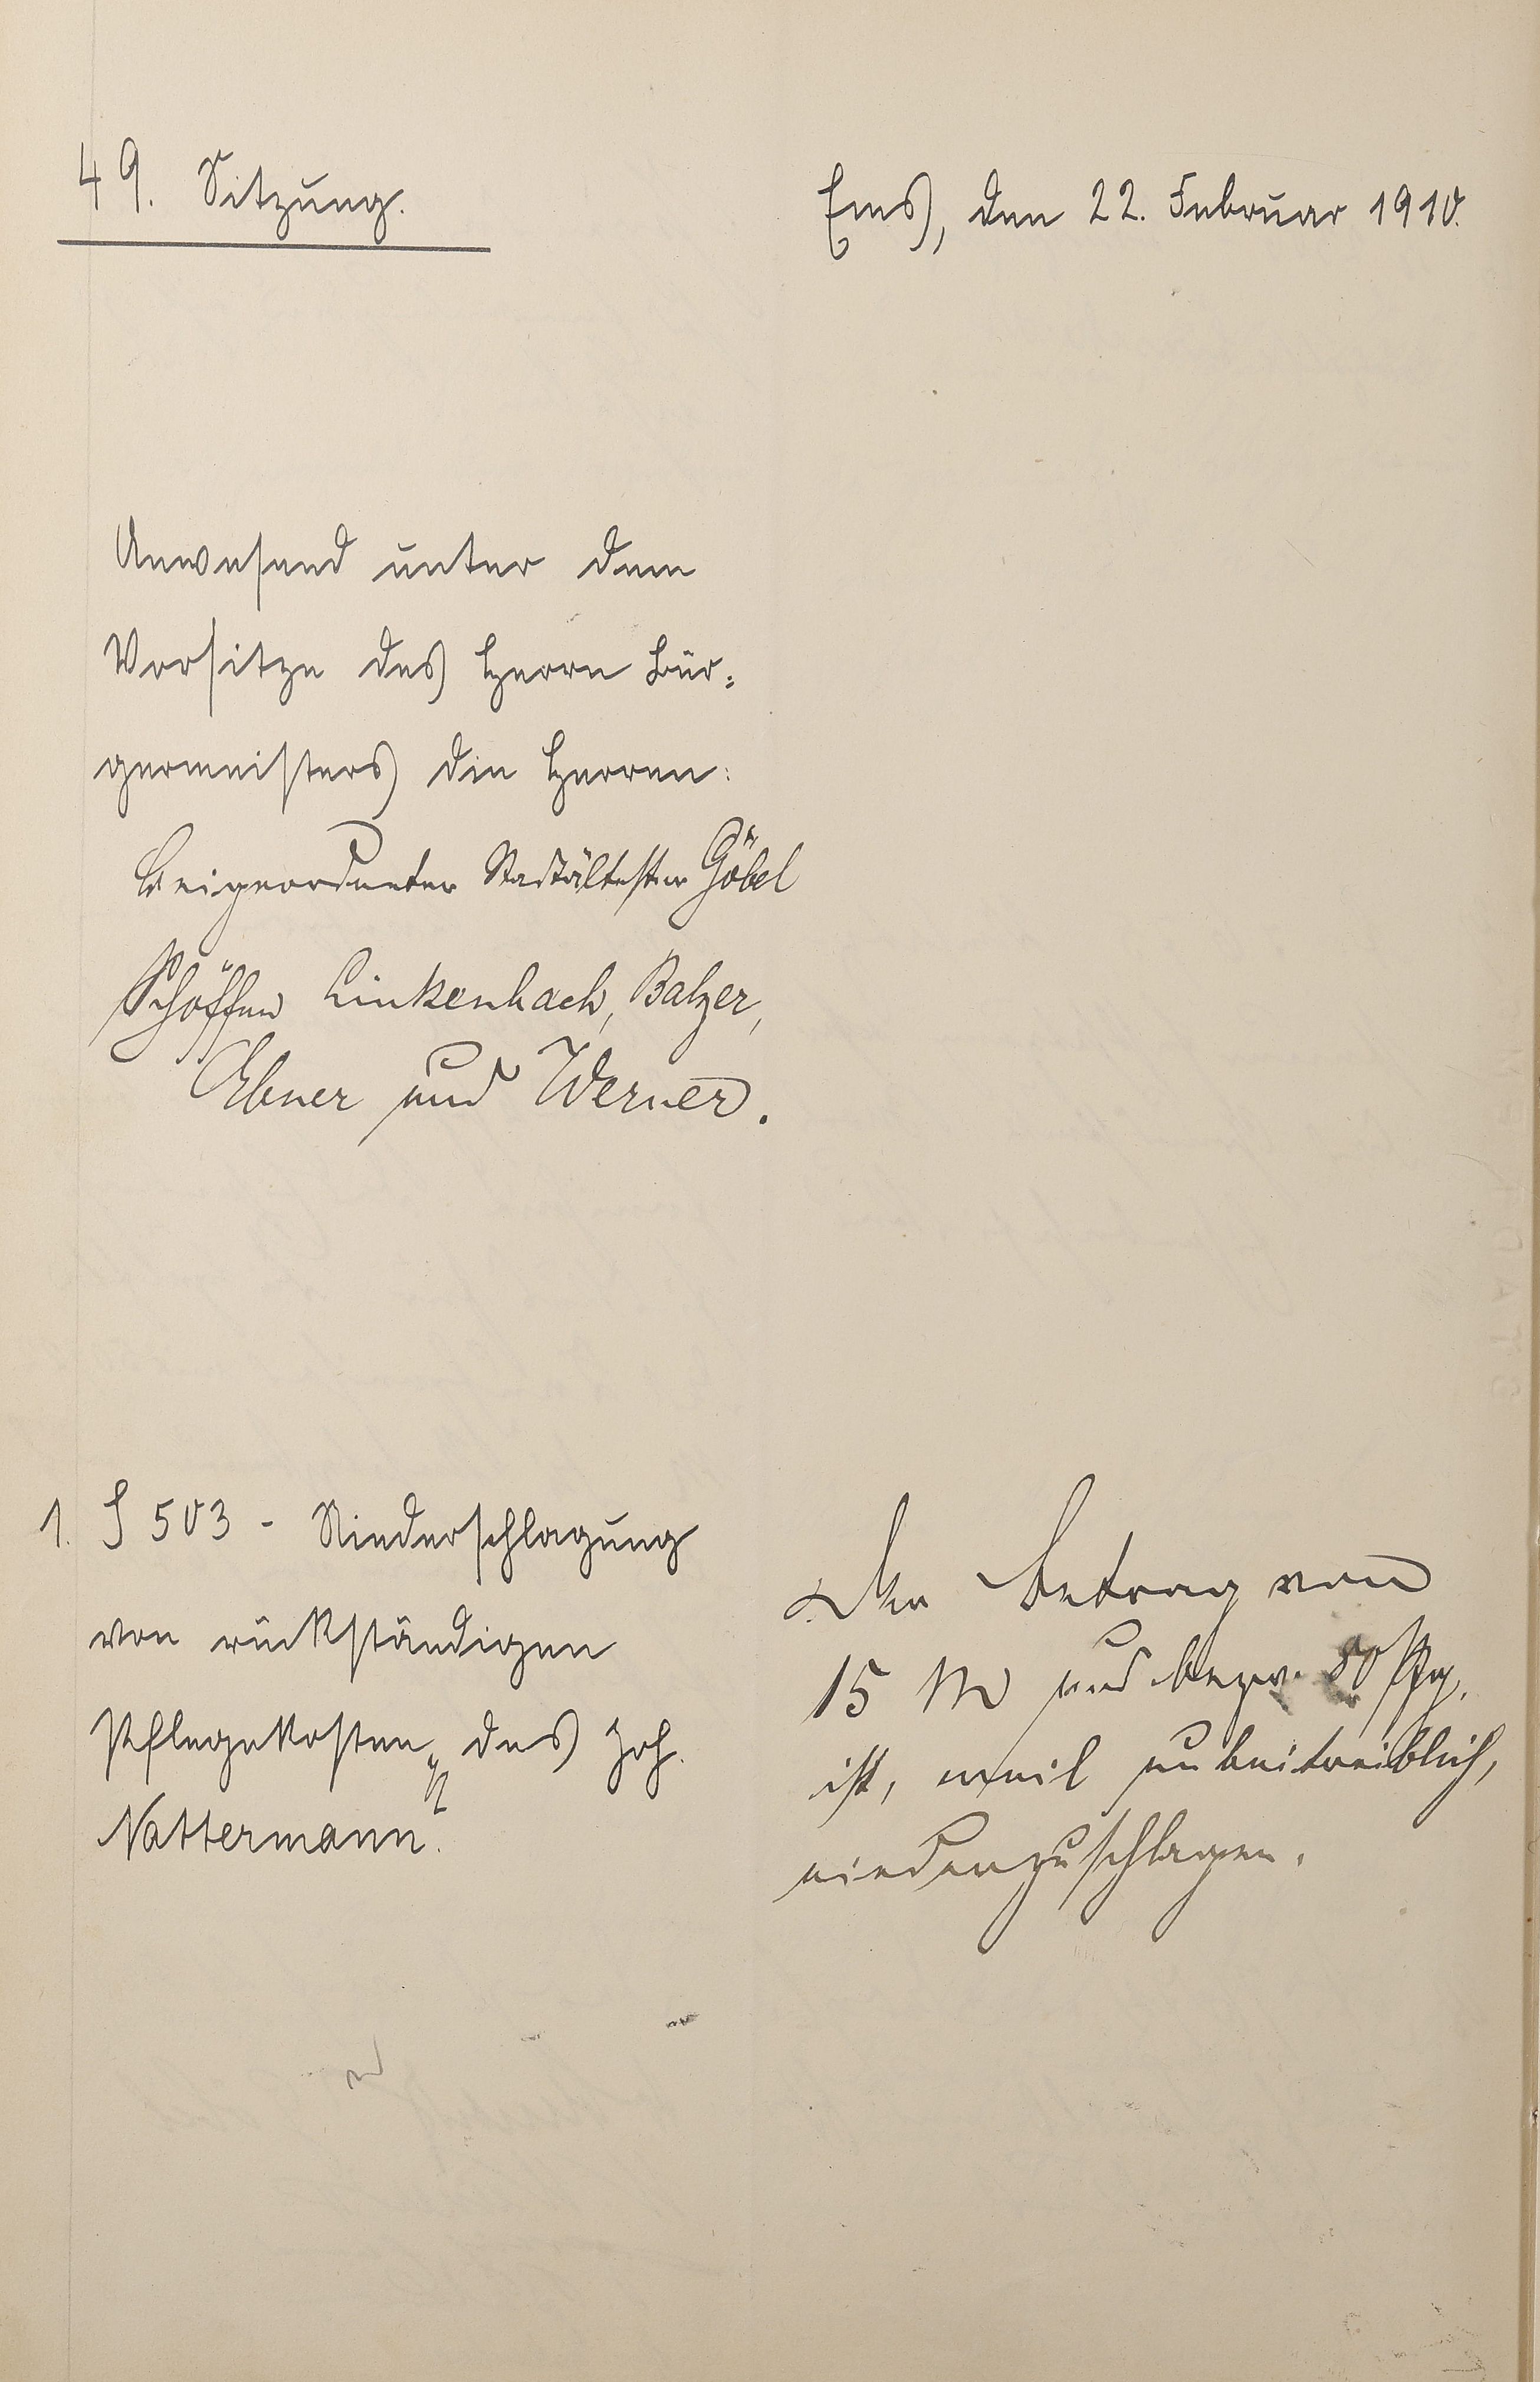 49. Sitzung.
Ems, den 22. Februar 1910.
Anwesend unter dem
Vorsitze des Herrn Bür=
germeisters die Herren:
Beigeordneter Stadtältester Göbel
Schöffen Linkenbach, Balzer,
Ebner und Werner.
1. § 503 - Niederschlagung
von rückständigen
Pflegekosten des Joh.
Nattermann.
Der Betrag von
15 M und bezw. 80 Pfg.
ist, weil unbeitreiblich,
niederzuschlagen.